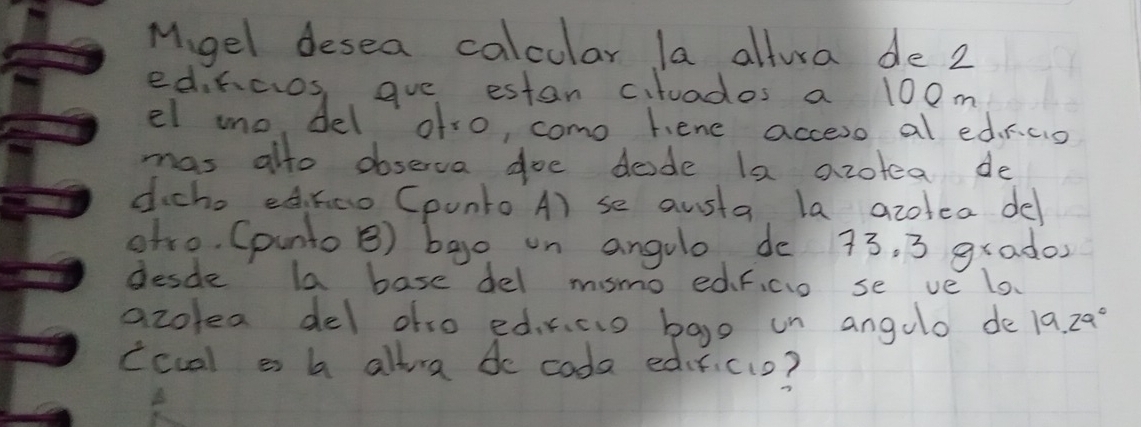 Migel desea calcular la altura de 2
edificios, que estan cituados a 100m
el uno, del otro, como tiene acceso al edificio
mas alto observa que desde la azotea de
dicho edificio (punto A) se avista la azotea del
otro. (punto B) bajo un angulo de 73.3 grados
desde la base del mismo edificio se ve la
azotea del otro edificio bajo un angulo de 19.29°
¿cual es la altura de cada edificio?